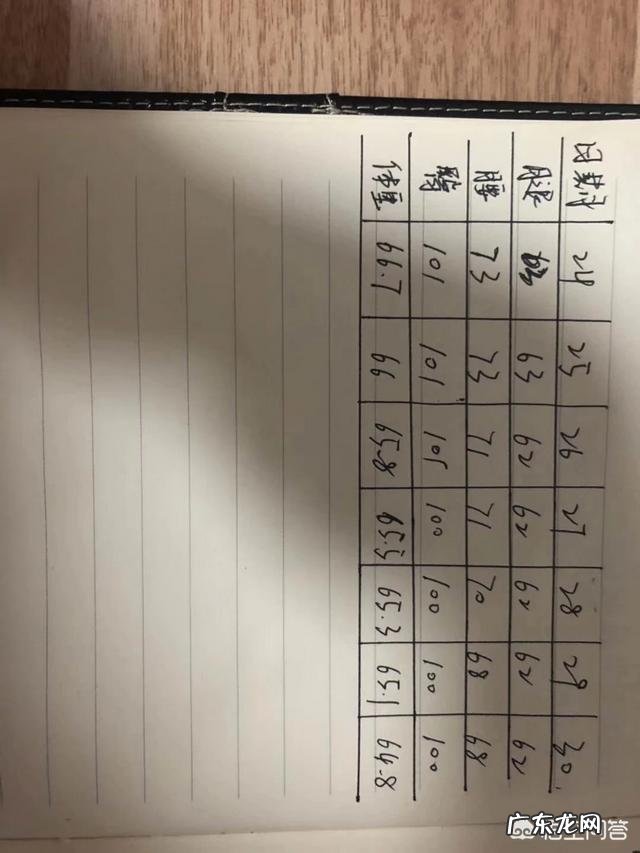 日期 24 25 26 27 28 29 30
腿 63 63 62 62 62 62 62
腰 73 73 71 71 70 68 68
臀 101 101 101 100 100 100 100
体重 66.7 66 65.8 65.5 65.3 65.1 64.8
广东龙网
问答